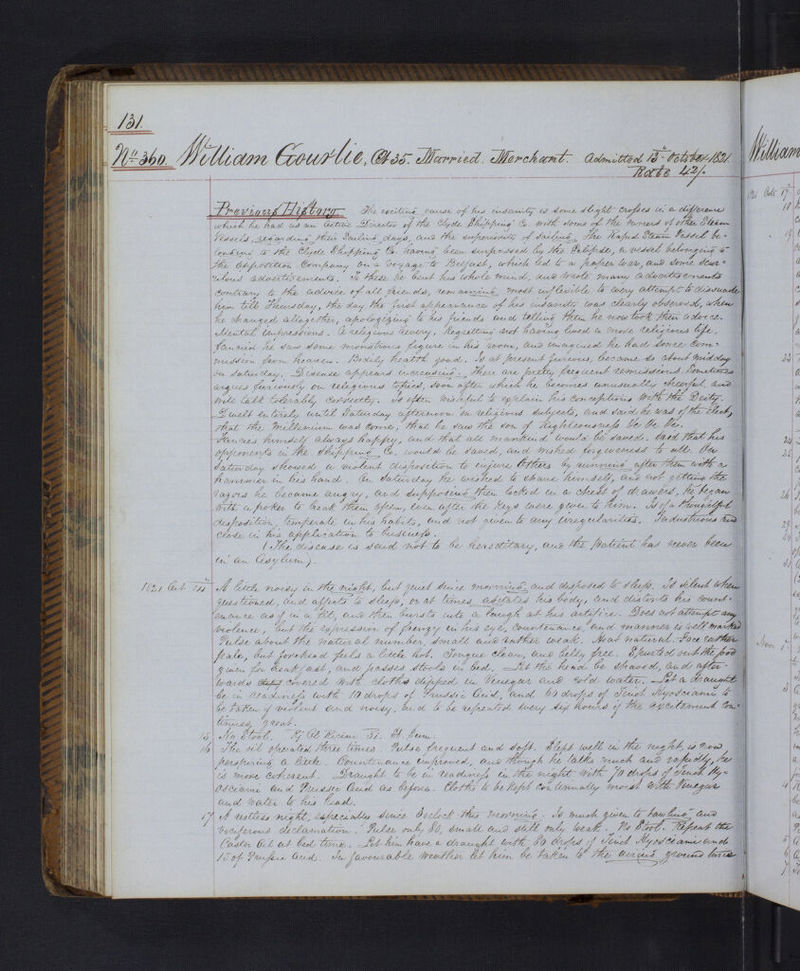 131.
No. 360. William Gourlie, Æt 35. Married. Merchant. Admitted 13th October 1821.
Rate 42/.
Previous History The exciting cause of his insanity is some slight crosses in a difference
which he had as an active Director of the Clyde Shipping Co. with some of the owners of other Steam
Vessels, regarding their Sailing days, and the superiority of sailing. The Rapid Steam Vessel be-
longing to the Clyde Shipping Co. having been surpassed by the Eclipse, a vessel belonging to
the opposition Company on a voyage to Belfast, which led to a paper war, and some scur-
rilous advertisements. To these he bent his whole mind, and wrote many advertisements
contrary to the advice of all friends, remaining most inflexible to every attempt to dissuade
him till Thursday, the day the first appearance of his insanity was clearly observed, when
he changed altogether, apologizing to his friends and telling them he now took their advice.
Mental impressions. A religious Regretting not having lived a more religious life.
fancied he saw some monstrous figure in his room, and imagined he had some com-
mission from heaven. Bodily health good. Is at present furious, became so about midday
on Saturday. Disease appears increasing. There are pretty frequent remissions. Sometimes
argues furiously on religious topics, soon after which he becomes unusually cheerful and
will talk tolerably correctly. Is often wishful to explain his conceptions with the Deity.
Dwelt entirely until Saturday afternoon on religious subjects, and said he was of the elect,
that the Millenium was come, that he saw the son of righteousness &c &c &c.
Fancies himself always happy, and that all mankind would be saved. Said that his
opponents in the Shipping Co. would be saved, and wished forgiveness to all. On
Saturday showed a violent disposition to injure others by running after them with a
hammer in his hand. On Saturday he wished to shave himself, and not getting the
razors he became angry, and supposing them locked in a chest of drawers, he began
with a poker to break them open, even after the keys were given to him. Is of a thoughtful
disposition, temperate in his habits, and not given to any irregularities. Industrious and
close in his application to business.
(The disease is said not to be hereditary, and the patient has never been
in an Asylum).
1821 Oct. A little noisy in the night, but quiet since morning and disposed to sleep. Is silent when
questioned, and affects to sleep, or at times agitates his body, and distorts his count-
enance as if in a fit, and then bursts into a laugh at his artifice. Does not attempt any
violence, but the expression of frenzy in his eye, countenance, and manner is well marked
Pulse about the natural number, small and rather weak. Heat natural. Face rather
pale, but forehead feels a little hot. Tongue clean, and belly free. Spurted out the food
given for breakfast, and passes stools in bed. Let the head be shaved, and after-
wards covered with cloths dipped in vinegar and cold water. Let a draught
be in readiness with 10 drops of Prussic Acid, and 60 drops of Tinct Hyosciami to
be taken if violent and noisy, and to be repeated every six hours if the excitement con-
tinues great.
15 No Stool. Ol Ricini
16 The oil operated three times. Pulse frequent and soft. Slept well in the night, is now
perspiring a little. Countenance improved, and though he talks much and rapidly, he
is more coherent. Draught to be in readiness in the night with 70 drops of Tinct Hy-
osciami and Prussic Acid as before. Cloths to be kept continually moist with Vinegar
and water to his head.
17 A restless night, especially since 3 oclock this morning. Is much given to bawling and
vociferous declamation. Pulse only 80, small and still only weak. No Stool. Repeat the
Castor Oil at bed time. Let him have a draught with 60 drops of Tinct Hyosciami and
15 of Prussic Acid. In favourable weather let him be taken to the airing ground twice
William